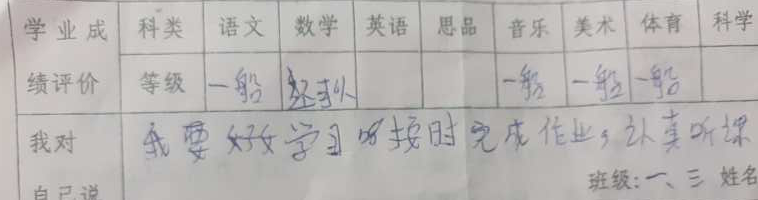 学业成 科类 语文 数学 英语 思品 音乐 美术 体育 科学
绩评价 等级 一船 一船 一船 一船
我对 我要好好学习 按时完成作业,认真听课
自己说 班级:一、三 姓名